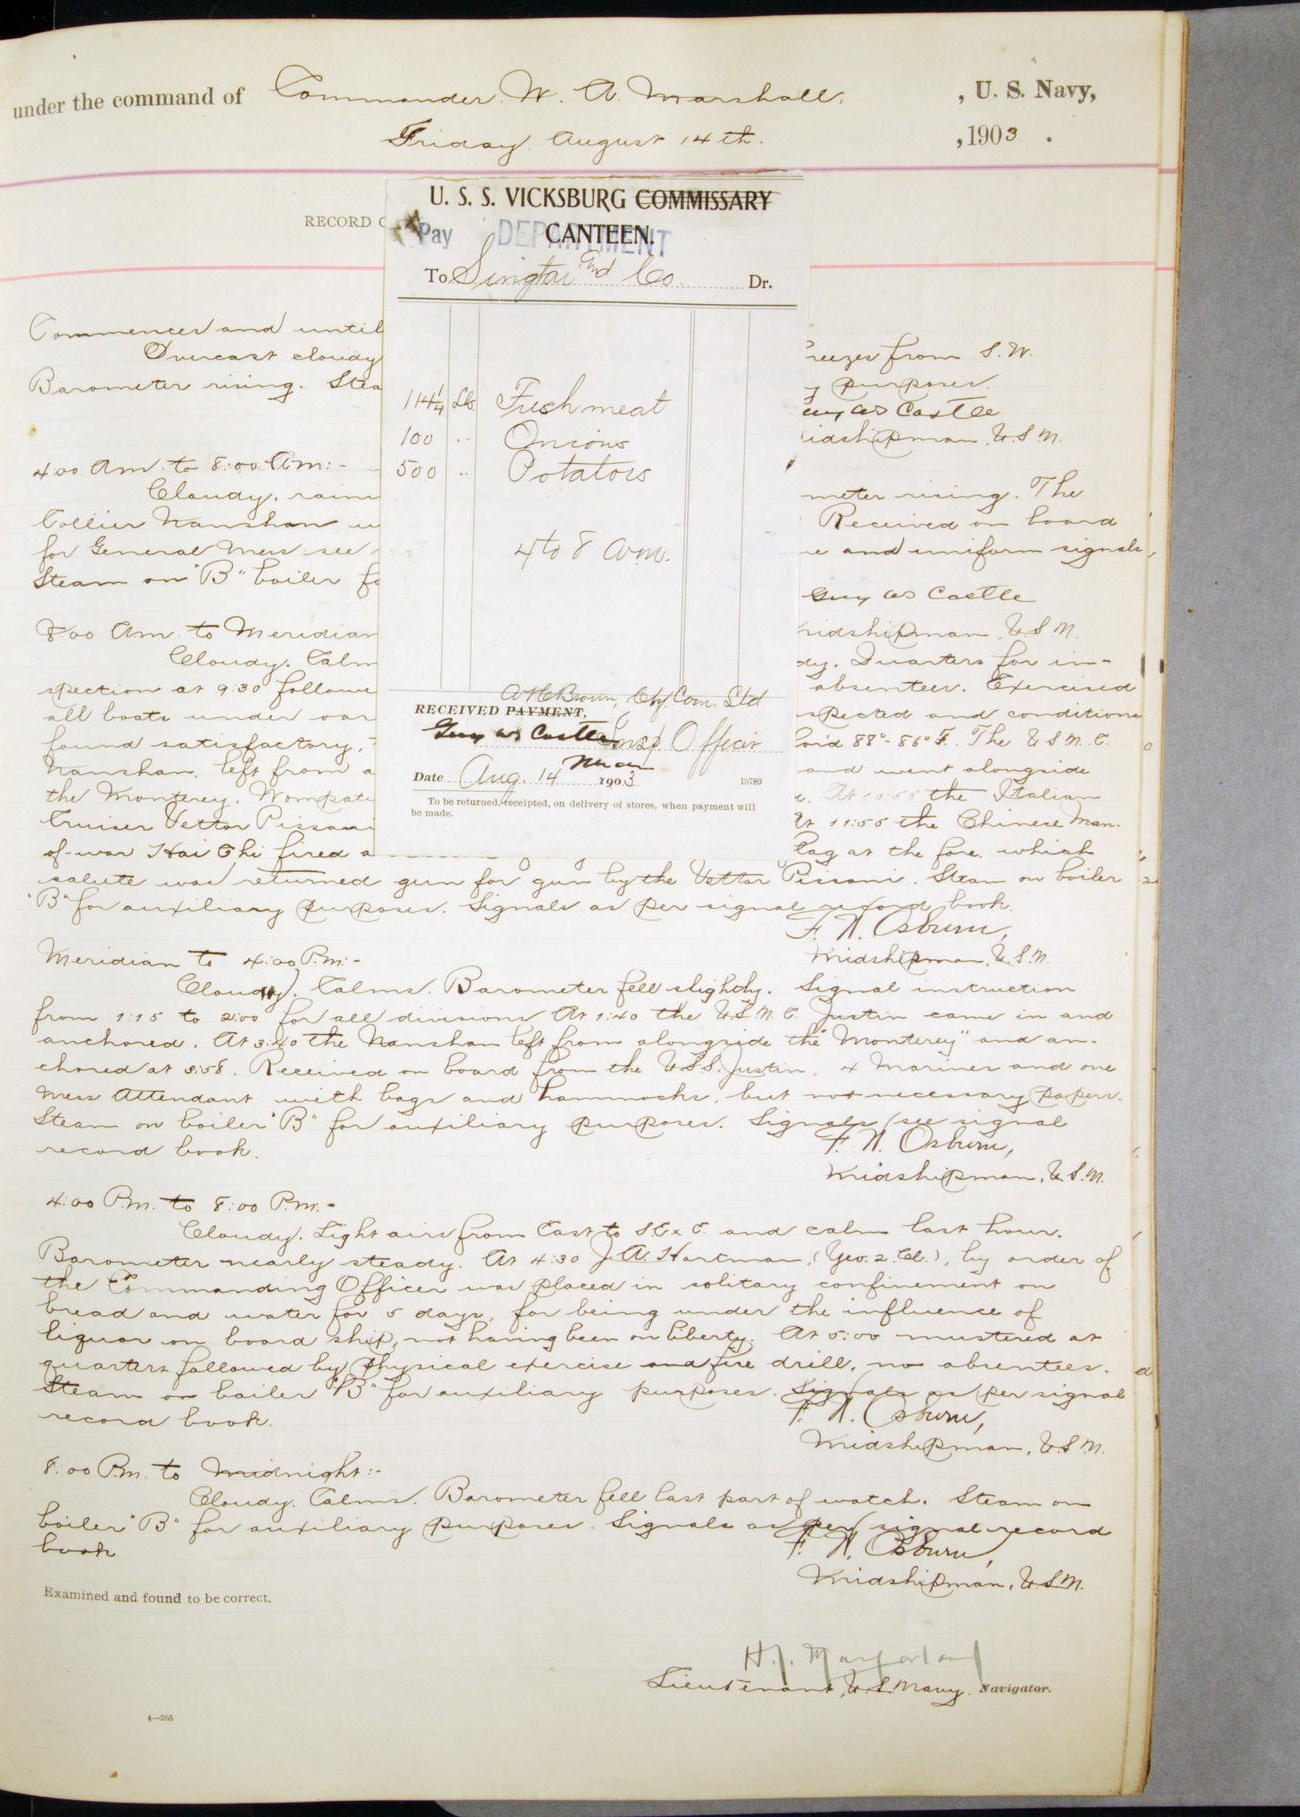 under the command of Commander W. A. Marshall, , U. S. Navy,
Friday August 14th. , 1903 .
RECORD O
U. S. S. VICKSBURG COMMISSARY
Pay DEPARTMENT
CANTEEN.
To Singtai and Co. Dr.
114¼ Lbs Fresh meat
100 " Onions
500 " Potatoes
4 to 8 a.m.
A H Brown, Chf. Com. Std
RECEIVED PAYMENT,
Guy W S Castle Insp Officer
Date Aug. 14 1903 15789
To be returned, receipted, on delivery of stores, when payment will
be made.
Commences and until
Overcast cloudy reezes from S.W.
Barometer rising. Stea y purposes.
Guy W S Castle
idshipman, U.S.N.
4:00 A.m. to 8:00 A.m:-
Cloudy, rain meter rising. The
Collier Nanshan w Received on board
for General Mess see e and uniform signals,
Steam on "B" boiler fo
Guy W S Castle
8:00 A.m. to Meridian idshipman, U.S.N.
Cloudy. Calm dy. Quarters for in-
spection at 9:30 followe absentees. Exercised
all boats under oar spected and conditions
found satisfactory, 88°-86° F. The U.S.N.C.
Nanshan left from a and went alongside
the Monterey. Wompatu At 10:55 the Italian
Cruiser Vettor Pissani At 11:55 the Chinese Man-
of-war Hai Chi fired a lag at the fore which
salute was returned gun for gun by the Vettor Pissani. Steam on boiler
"B" for auxiliary purposes. Signals as per signal record book.
F. N. Osburn,
Midshipman, U.S.N.
Meridian to 4:00 P.m:-
Cloudy. Calms. Barometer fell slightly. Signal instruction
from 1:15 to 2:00 for all divisions At 1:40 the U.S.N.C. Justin came in and
anchored. At 3:40 the Nanshan left from alongside the "Monterey" and an-
chored at 3:58. Received on board from the U.S.S. Justin, 4 Marines and one
Mess Attendant with bags and hammocks, but not necessary papers.
Steam on boiler "B" for auxiliary purposes. Signals see signal
record book.
F. N. Osburn,
Midshipman, U.S.N.
4:00 P.m. to 8:00 P.m.-
Cloudy. Light airs from East to S.E x E. and calm last hour.
Barometer nearly steady. At 4:30 J. A. Hartman, (Yeo. 2. Cl.), by order of
the Commanding Officer was placed in solitary confinement on
bread and water for 5 days, for being under the influence of
liquor on board ship, not having been on liberty. At 5:00 mustered at
quarters followed by physical exercise and fire drill, no absentees.
Steam on boiler "B" for auxiliary purposes. Signals as per signal
record book.
F. N. Osburn,
Midshipman, U.S.N.
8:00 P.m. to Midnight:-
Cloudy. Calms. Barometer fell last part of watch. Steam on
boiler "B" for auxiliary purposes. Signals as per signal record
book
F. N. Osburn,
Midshipman, U.S.N.
Examined and found to be correct.
Lieutenant, U.S. Navy, Navigator.
4—265